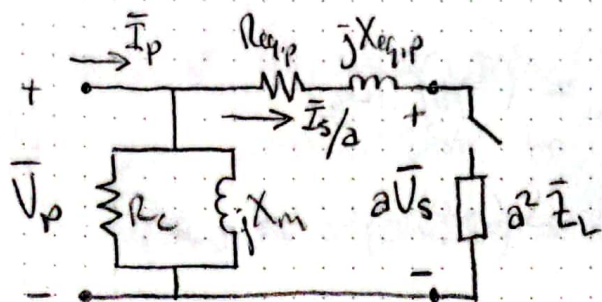 Īp Req.p jXeq.p
+ Īs/a +
V̄p Rc jXm aV̄s a² Z̄L
− −